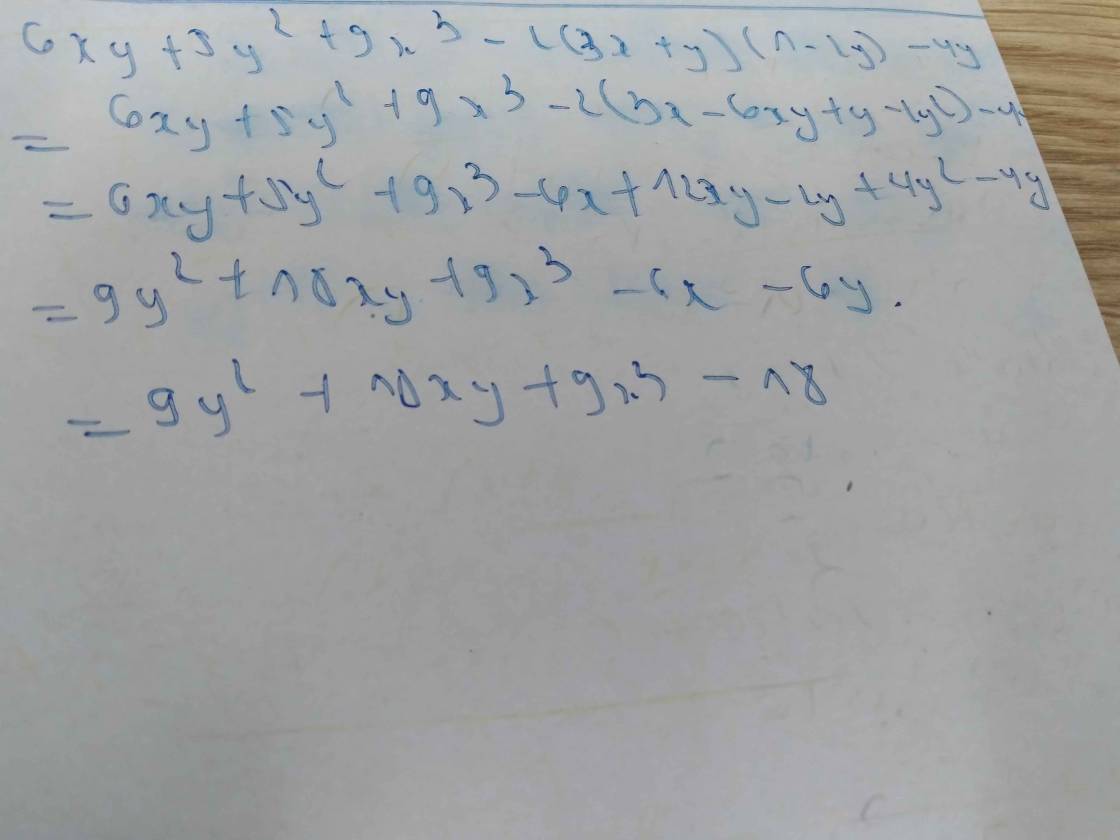 6xy + 5y² + 9x³ - 2(3x + y)(1 - 2y) - 4y
= 6xy + 5y² + 9x³ - 2(3x - 6xy + y - 2y²) - 4
= 6xy + 5y² + 9x³ - 6x + 12xy - 2y + 4y² - 4y
= 9y² + 18xy + 9x³ - 6x - 6y.
= 9y² + 18xy + 9x³ - 18